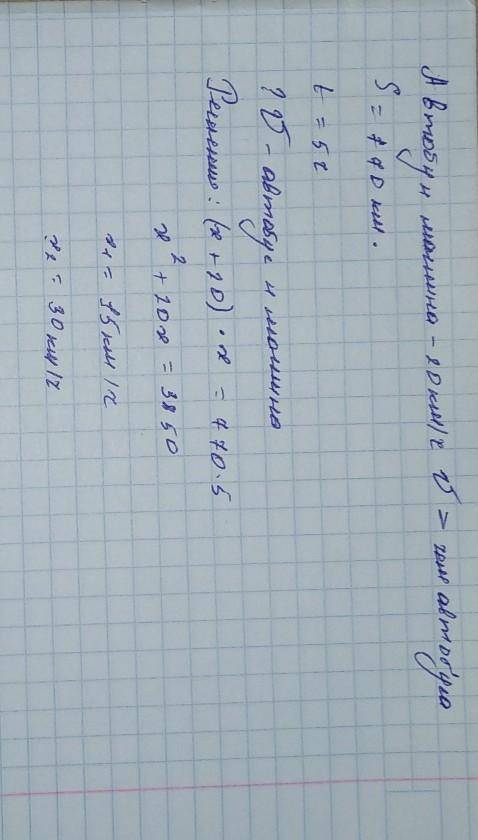 Автобус и машина – 20 км/ч v > чем автобуса
S = 770 км.
t = 5ч
? v – автобус и машина
Решение: (x + 20) · x = 770·5
x² + 20x = 3850
x₁ = 75км/ч
x₂ = 30км/ч